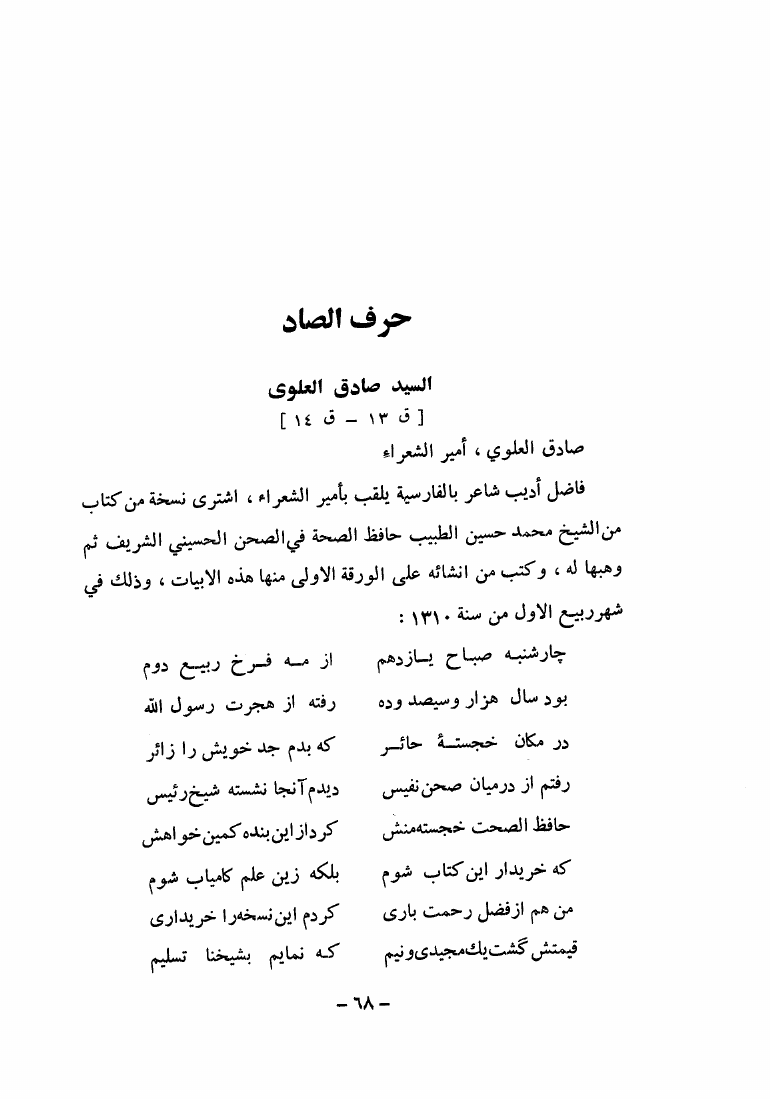 حرف الصاد
السيد صادق العلوي
[ ق ١٣ – ق ١٤ ]
صادق العلوي ، أمير الشعراء
فاضل أديب شاعر بالفارسية يلقب بأمير الشعراء ، اشترى نسخة من كتاب
من الشيخ محمد حسين الطبيب حافظ الصحة في الصحن الحسيني الشريف ثم
وهبها له ، وكتب من انشائه على الورقة الاولى منها هذه الابيات ، وذلك في
شهر ربيع الاول من سنة ١٣١٠ :
چارشنبه صباح يـازدهم از مـه فـرخ ربيـع دوم
بود سال هزار وسيصد وده رفته از هجرت رسول الله
در مكان خجستـۀ حائـر كه بدم جد خويش را زائر
رفتم از درميان صحن نفيس ديدم آنجا نشسته شيخ رئيس
حافظ الصحت خجسته منش كرد از اين بنده كمين خواهش
كه خريدار اين كتاب شوم بلكه زين علم كامياب شوم
من هم از فضل رحمت بارى كردم اين نسخه را خريدارى
قيمتش گشت يك مجيدى ونيم كـه نمايم بشيخنا تسليم
– ٦٨ –